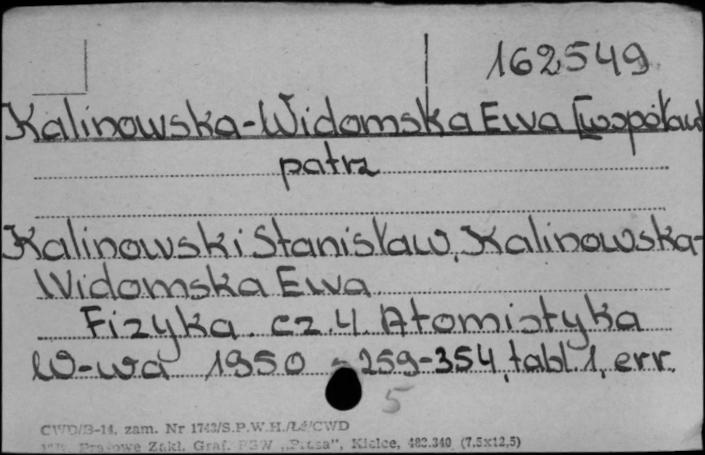 162549
Kalinowska-Widomska Ewa [współaut
patrz
Kalinowski Stanisław, Kalinowska-
Widomska Ewa
Fizyka. cz. 4. Atomistyka
W-wa 1950 - 259-354, tabl. 1, err.
5
CWD/B-14. zam. Nr 1743/S.P.W.H./Lś/CWD
Zakł. Graf. PZW „Prasa", Kielce, 482.340 (7,5x12,5)